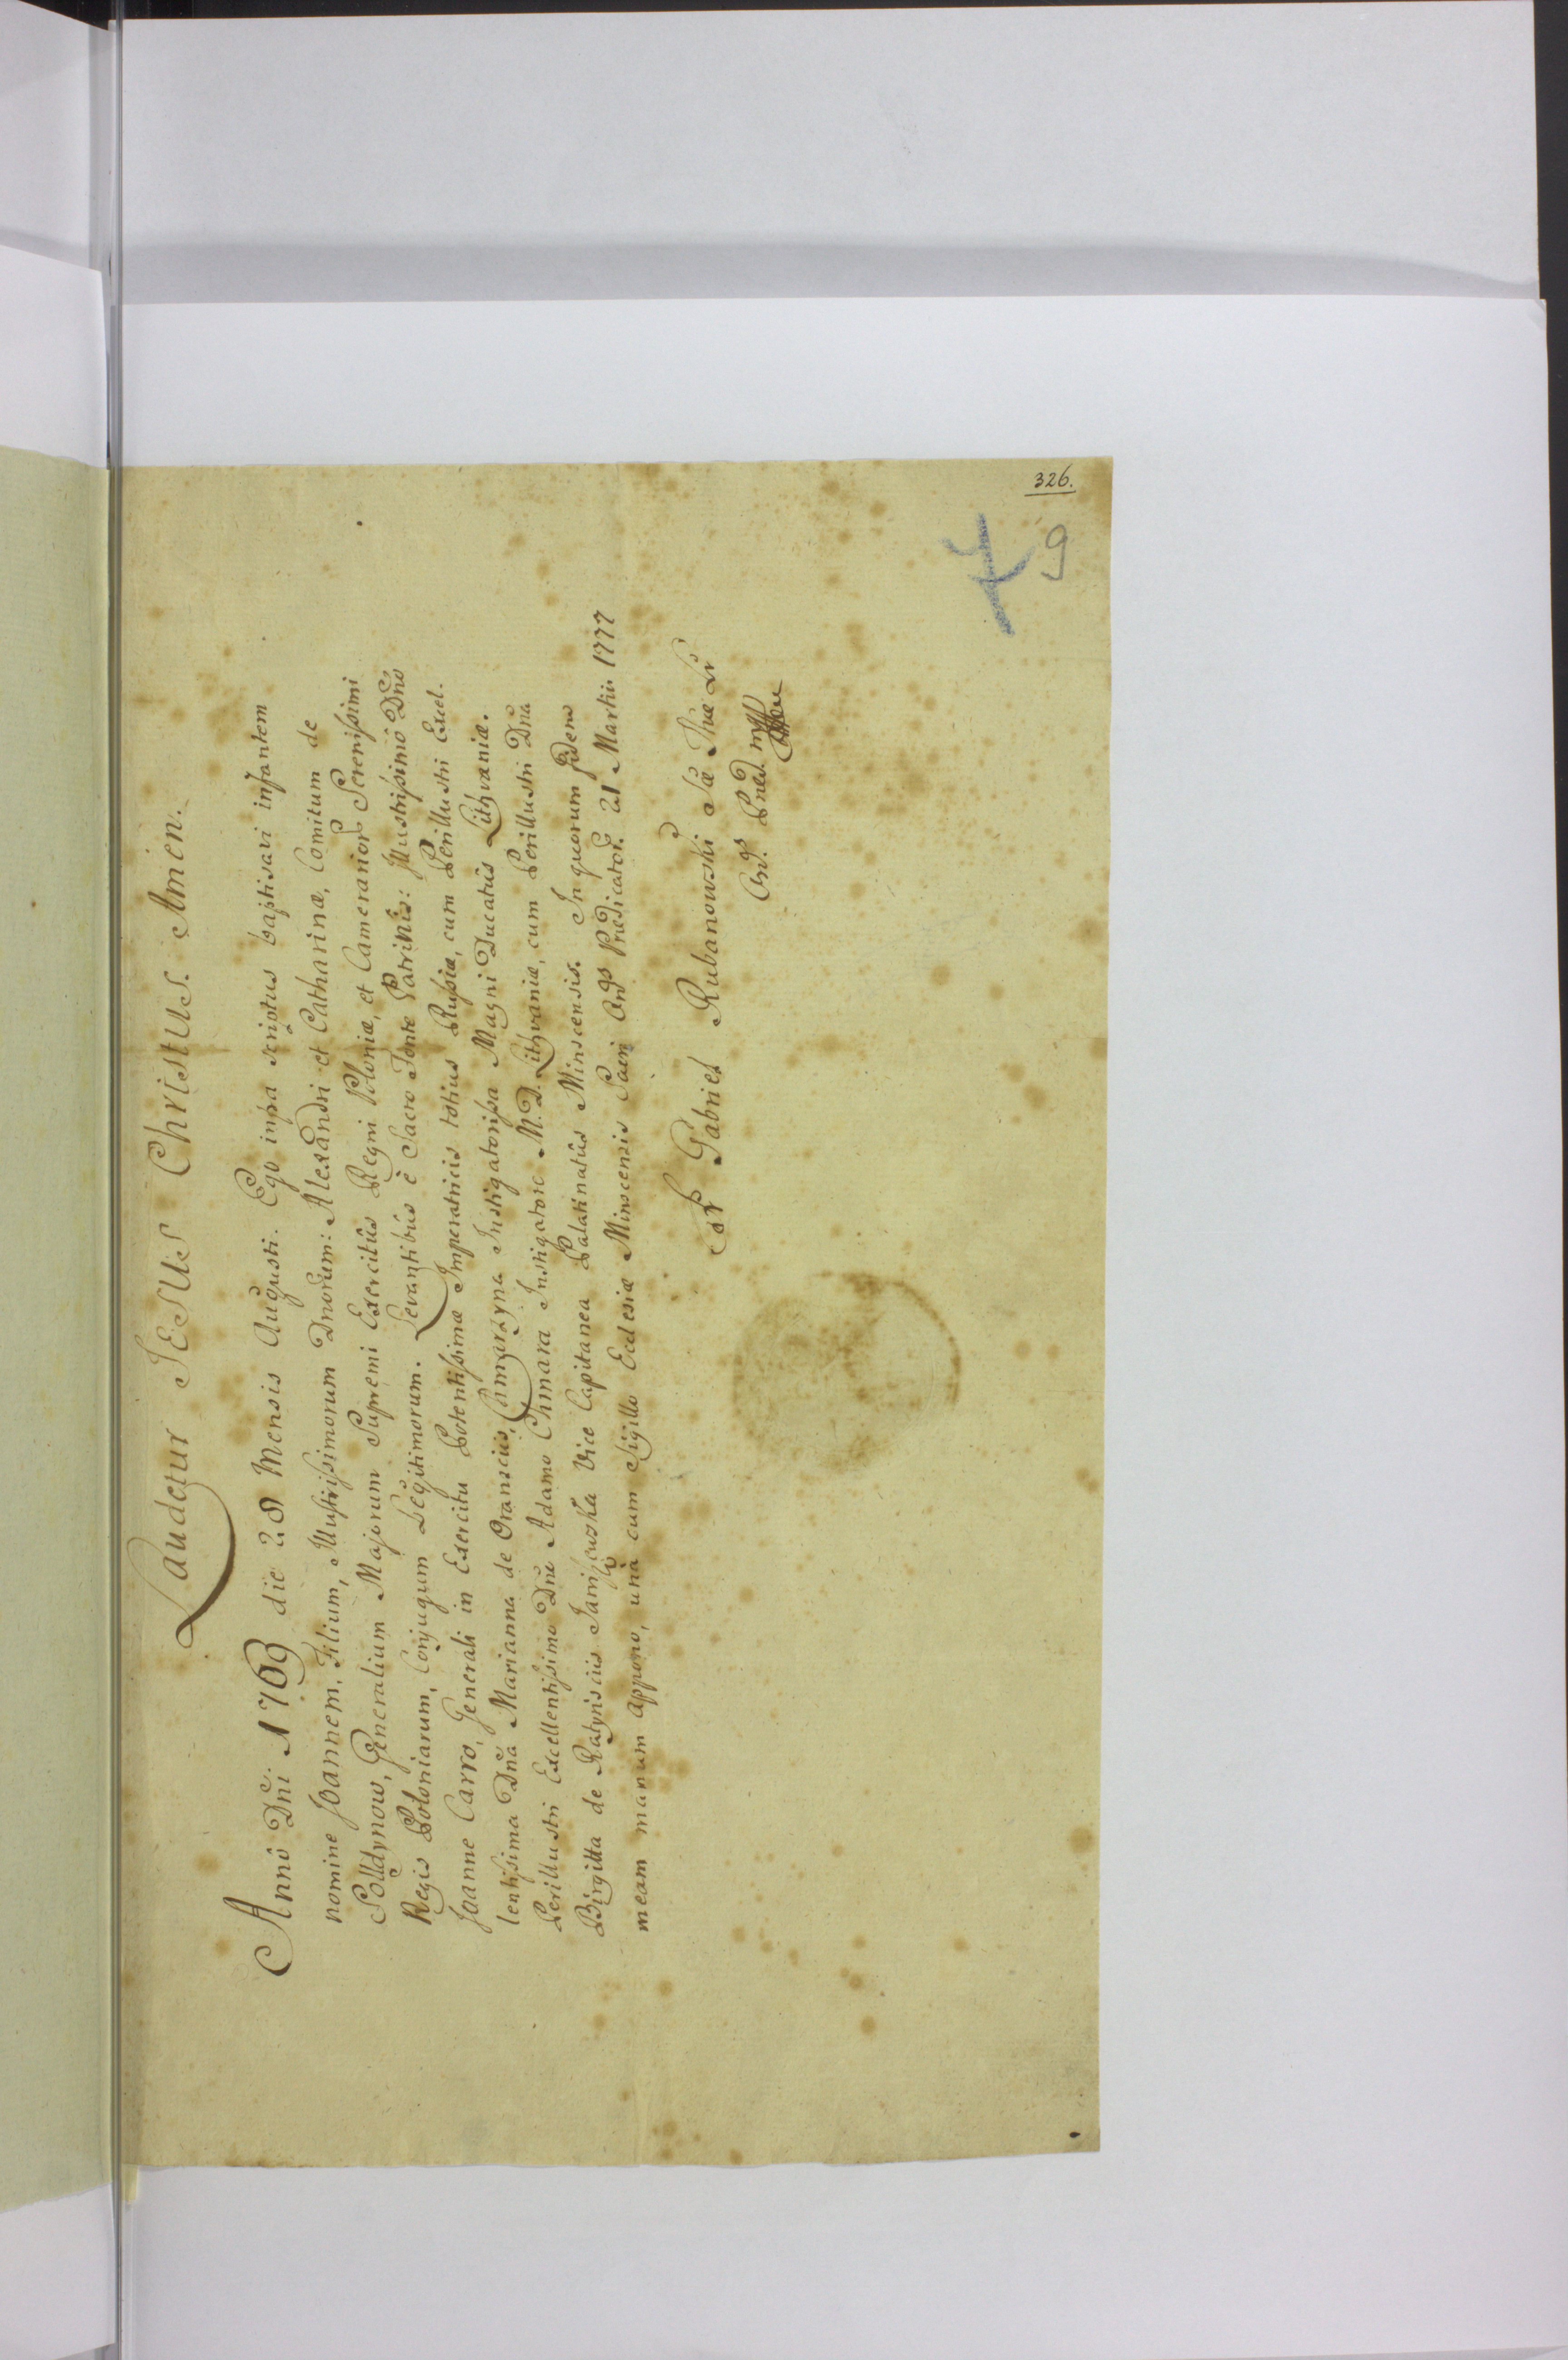 Laudetur JESUS Christus. Amen.
Anno Dni. 1769 die 28 Mensis Augusti. Ego infra scriptus baptisavi infantem
nomine Joannem, Filium, Illustrissimorum Dnorum: Alexandri et Catharinæ, Comitum de
Generalium Majorum Supremi Exercitûs Regni Poloniæ, et Camerarior Serenissimi
Regis Poloniarum, Conjugum Legitimorum. Levantibûs è Sacro Fonte Patrinîs: Illustrissimô Dnô
Joanne Carro, Generali in Exercitu Potentissimæ Imperatricis totius Russiæ, cum Perillustri Excel-
lentissima Dnâ Marianna de Instigatorissa Magni Ducatûs Lithvaniæ.
Perillustri Excellentissimo Dno Adamo Chmara Instigatore M. D. Lithvaniæ, cum Perillustri Dnâ
Birgitta de Vice Capitanea Palatinatûs Minscensis. In quorum fidem
meam manum appono, unà cum Sigillo Ecclesiæ Minscensis Sacri Ordis Prædicator. 21 Martii 1777
Fr Gabriel Rubanowski
Ordis Præd. mpp
326.
9